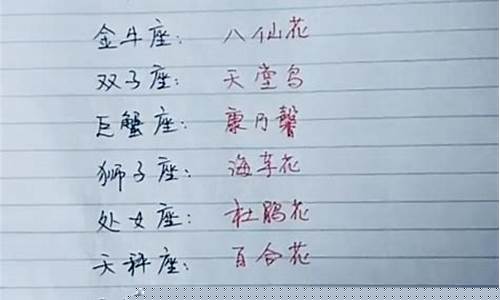 金牛座：八仙花
双子座：天堂鸟
巨蟹座：康乃馨
狮子座：海芋花
处女座：杜鹃花
天秤座：百合花